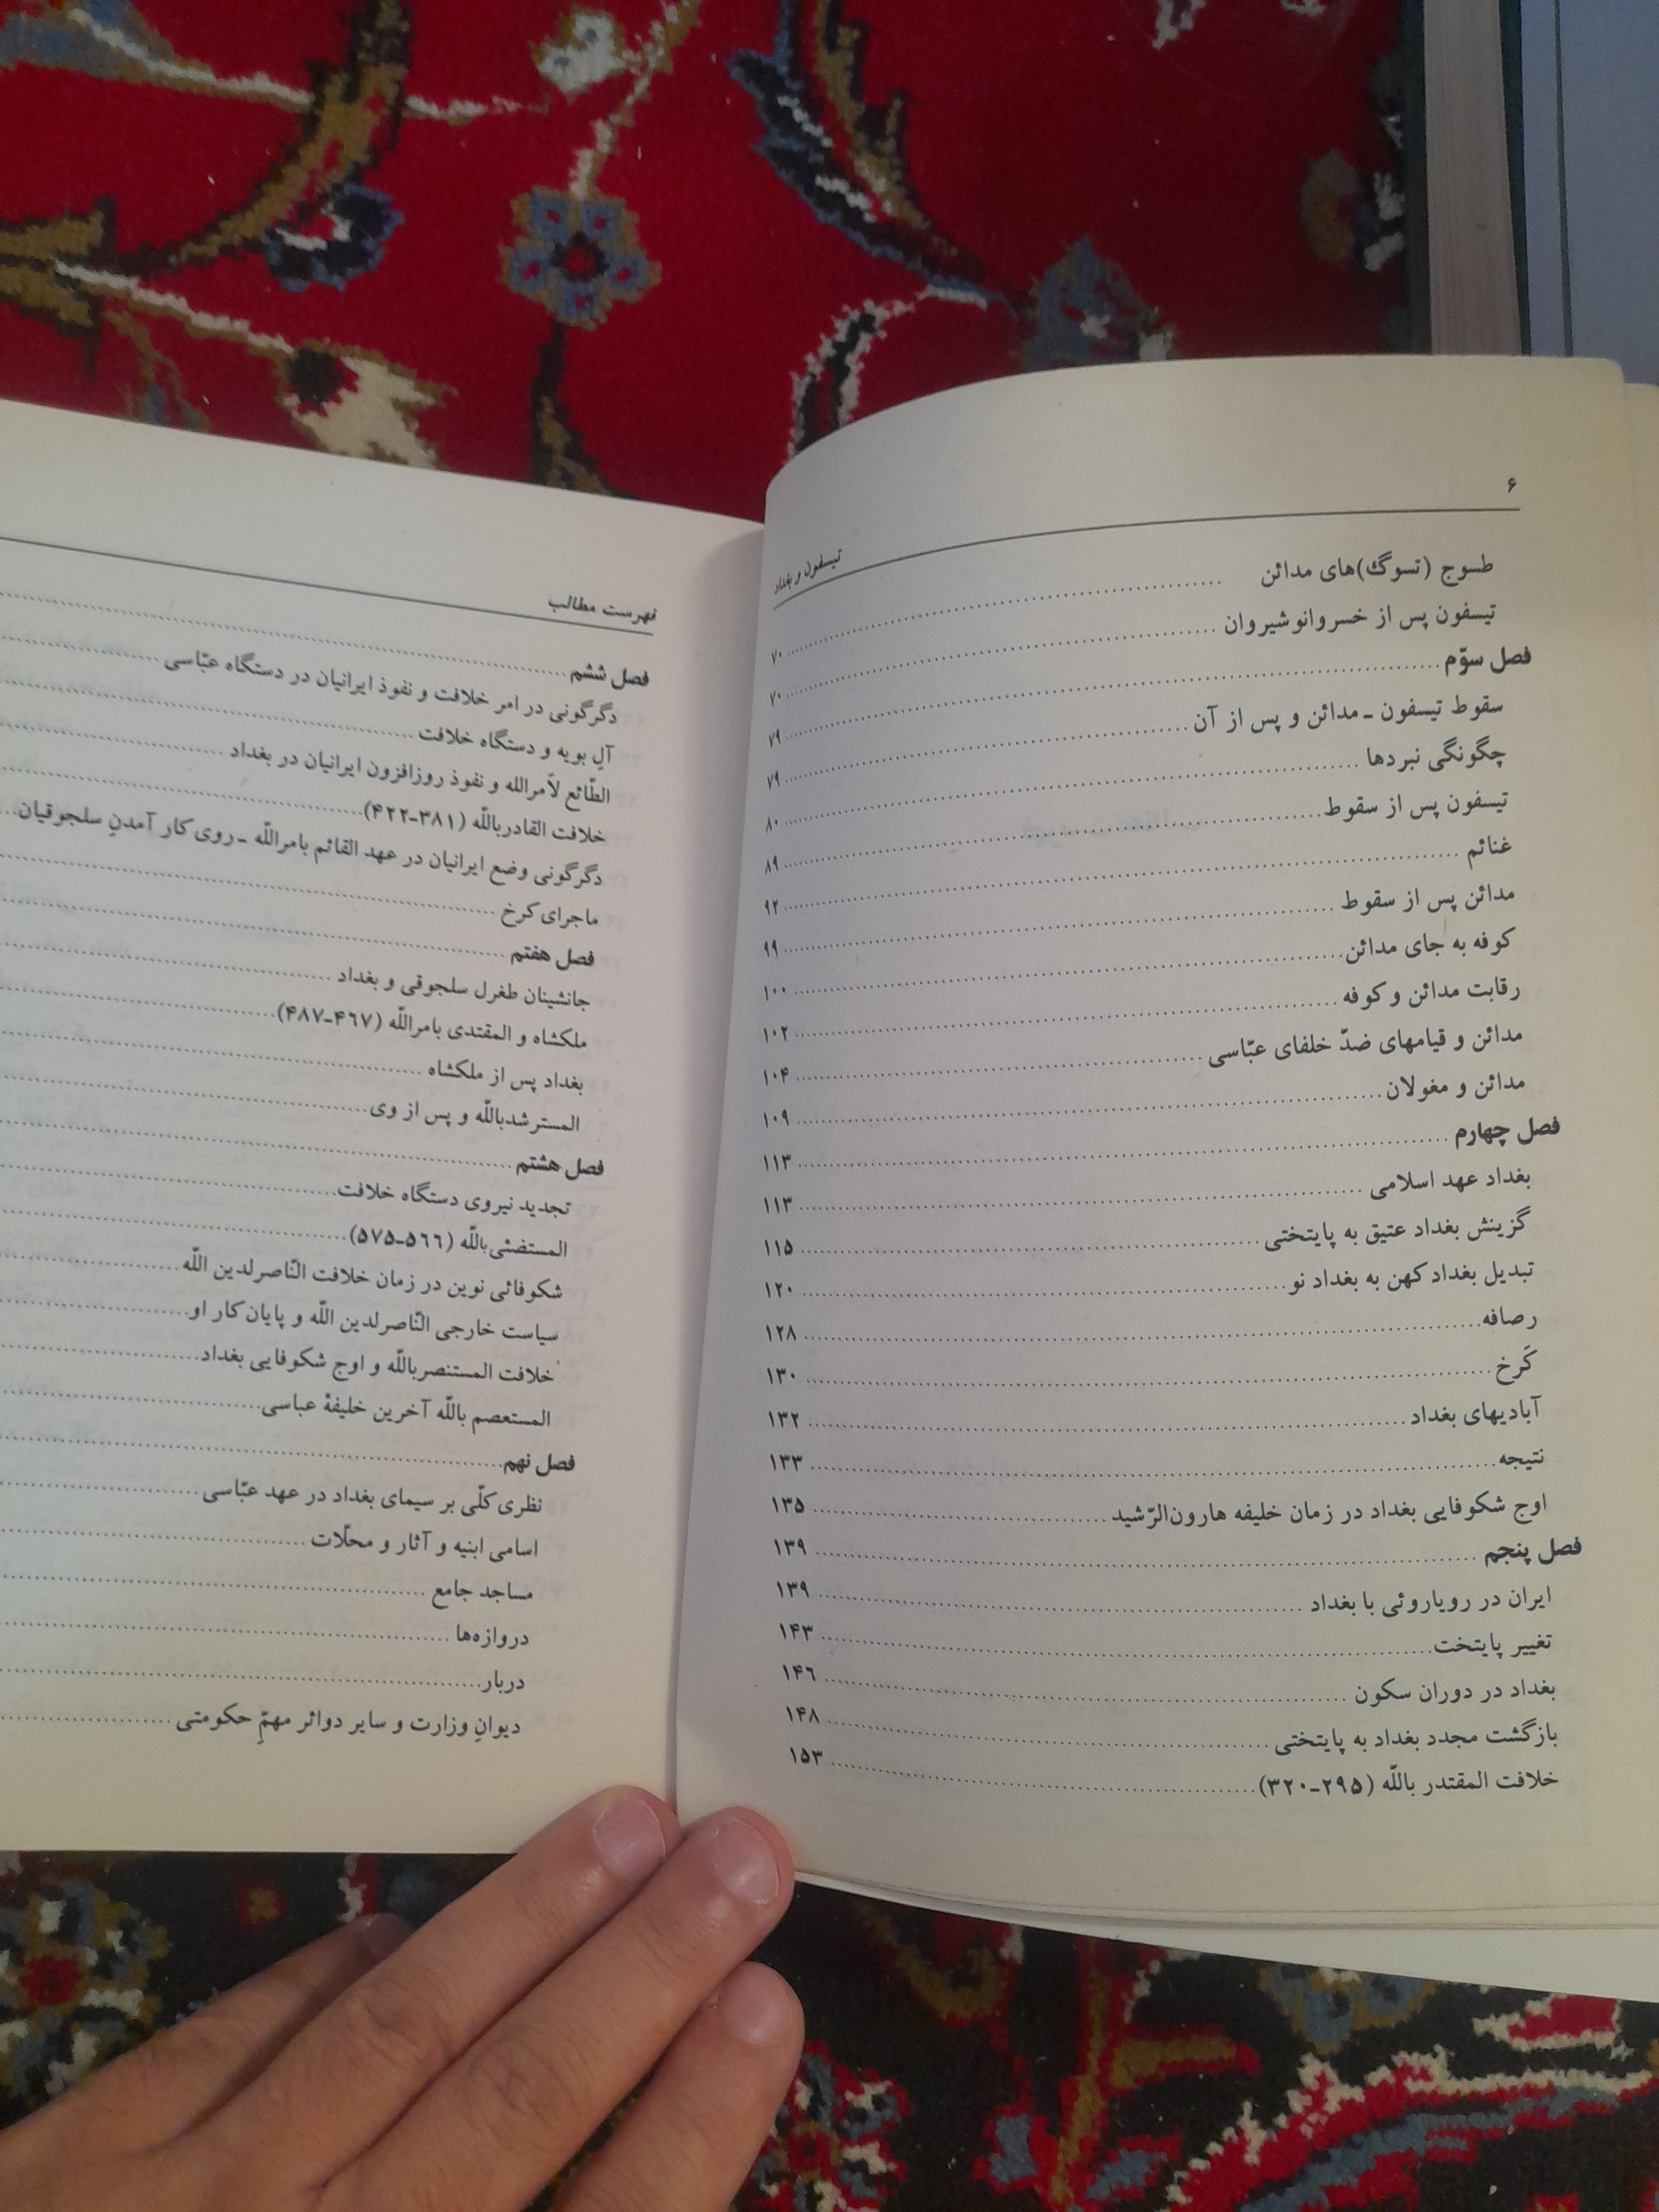 ۶
تیسفون و بغداد
طسوج (تسوگ)های مدائن ۷۰
تیسفون پس از خسروانوشیروان ۷۰
فصل سوّم ۷۹
سقوط تیسفون ـ مدائن و پس از آن ۷۹
چگونگی نبردها ۸۰
تیسفون پس از سقوط ۸۹
غنائم ۹۲
مدائن پس از سقوط ۹۹
کوفه به جای مدائن ۱۰۰
رقابت مدائن و کوفه ۱۰۲
مدائن و قیامهای ضدّ خلفای عبّاسی ۱۰۴
مدائن و مغولان ۱۰۹
فصل چهارم ۱۱۳
بغداد عهد اسلامی ۱۱۳
گزینش بغداد عتیق به پایتختی ۱۱۵
تبدیل بغداد کهن به بغداد نو ۱۲۰
رصافه ۱۲۸
کَرخ ۱۳۰
آبادیهای بغداد ۱۳۲
نتیجه ۱۳۳
اوج شکوفایی بغداد در زمان خلیفه هارون‌الرّشید ۱۳۵
فصل پنجم ۱۳۹
ایران در رویاروئی با بغداد ۱۳۹
تغییر پایتخت ۱۴۳
بغداد در دوران سکون ۱۴۶
بازگشت مجدد بغداد به پایتختی ۱۴۸
خلافت المقتدر باللّه (۲۹۵ـ۳۲۰) ۱۵۳
فهرست مطالب
فصل ششم
دگرگونی در امر خلافت و نفوذ ایرانیان در دستگاه عبّاسی
آلِ بویه و دستگاه خلافت
الطّائع لاَمرالله و نفوذ روزافزون ایرانیان در بغداد
خلافت القادرباللّه (۳۸۱ـ۴۲۲)
دگرگونی وضع ایرانیان در عهد القائم بامراللّه ـ روی کار آمدنِ سلجوقیان
ماجرای کرخ
فصل هفتم
جانشینان طغرل سلجوقی و بغداد
ملکشاه و المقتدی بامراللّه (۴۶۷ـ۴۸۷)
بغداد پس از ملکشاه
المسترشدباللّه و پس از وی
فصل هشتم
تجدید نیروی دستگاه خلافت
المستضئی‌باللّه (۵۶۶ـ۵۷۵)
شکوفائی نوین در زمان خلافت النّاصرلدین اللّه
سیاست خارجی النّاصرلدین اللّه و پایان کار او
خلافت المستنصرباللّه و اوج شکوفایی بغداد
المستعصم باللّه آخرین خلیفهٔ عباسی
فصل نهم
نظری کلّی بر سیمای بغداد در عهد عبّاسی
اسامی ابنیه و آثار و محلّات
مساجد جامع
دروازه‌ها
دربار
دیوانِ وزارت و سایر دوائر مهمّ حکومتی